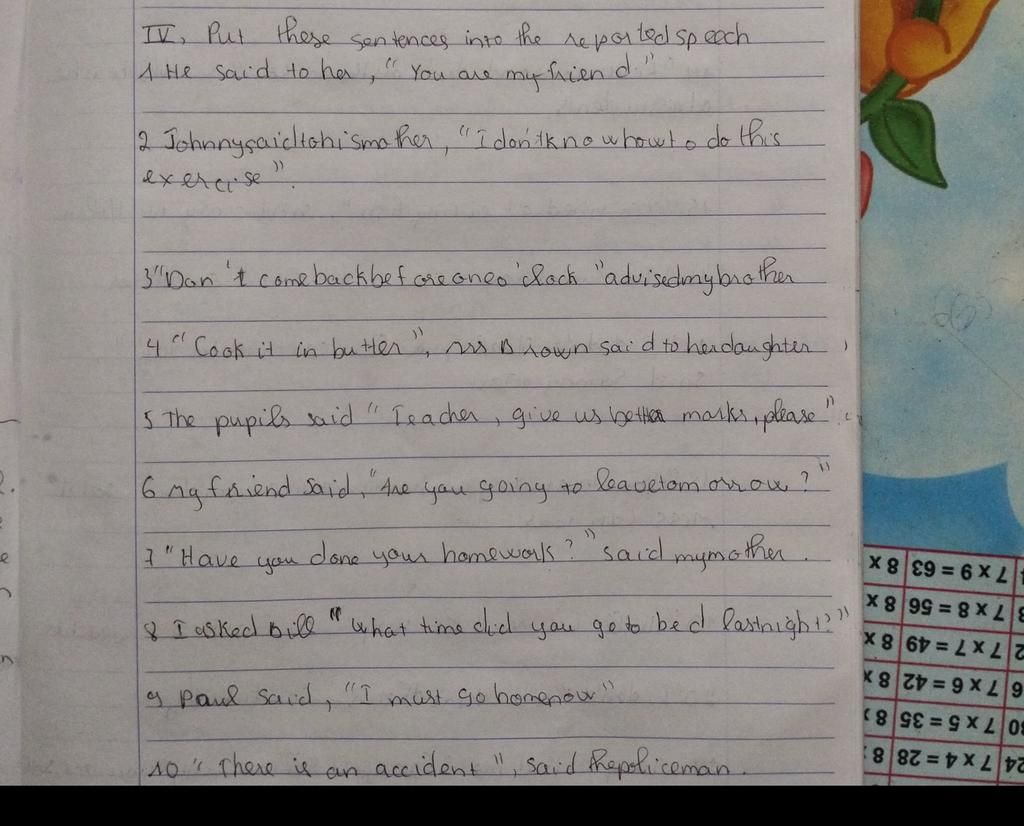 IV, Put these sentences into the reported speech
1 He said to her, " You are my friend "
2 Johnny said to his mother, "I don't know how to do this
exercise ".
3 "Don't come back before one o'clock " advised my brother
4 " Cook it in butter ", mrs Brown said to her daughter
5 The pupils said " Teacher, give us better marks, please ".
6 my friend said, "Are you going to leave tomorrow ? "
7 "Have you done your homework ? " said my mother .
8 I asked Bill " what time did you go to bed last night ? "
9 Paul said, "I must go home now "
10 " There is an accident ", said the policeman .
7 x 9 = 63
8 x
7 x 8 = 56
8 x
7 x 7 = 49
8 x
7 x 6 = 42
8 x
7 x 5 = 35
8 x
7 x 4 = 28
8